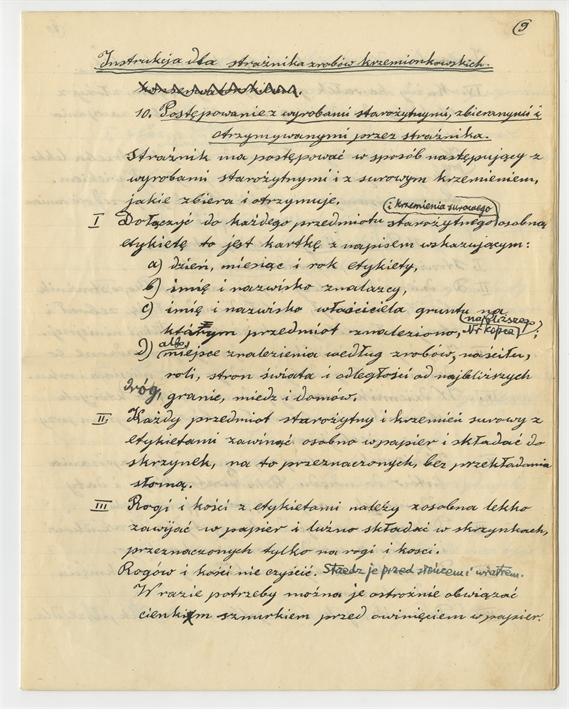 9
Instrukcja dla strażnika zrobów krzemionkowskich.
10. Postępowanie z wyrobami starożytnymi, zbieranymi i
otrzymywanymi przez strażnika.
Strażnik ma postępować w sposób następujący z
wyrobami starożytnymi i z surowym krzemieniem,
jakie zbiera i otrzymuje.
i krzemienia surowego
I Dołączyć do każdego przedmiotu starożytnego osobną
etykietę to jest kartkę z napisem wskazującym:
a) dzień, miesiąc i rok etykiety,
b) imię i nazwisko znalazcy,
c) imię i nazwisko właściciela gruntu na
najbliższego
którym przedmiot znaleziono, Nr kopca;
albo
d) miejsce znalezienia według zrobów, naściłu,
roli, stron świata i odległości od najbliższych
dróg, granic, miedz i domów.
II. Każdy przedmiot starożytny i krzemień surowy z
etykietami zawinąć osobno w papier i składać do
skrzynek, na to przeznaczonych, bez przekładania
słomą.
III Rogi i kości z etykietami należy zosobna lekko
zawijać w papier i luźno składać w skrzynkach,
przeznaczonych tylko na rogi i kości.
Rogów i kości nie czyścić. Strzedz je przed słońcem i wiatrem.
W razie potrzeby można je ostrożnie obwiązać
cienkim sznurkiem przed owinięciem w papier.